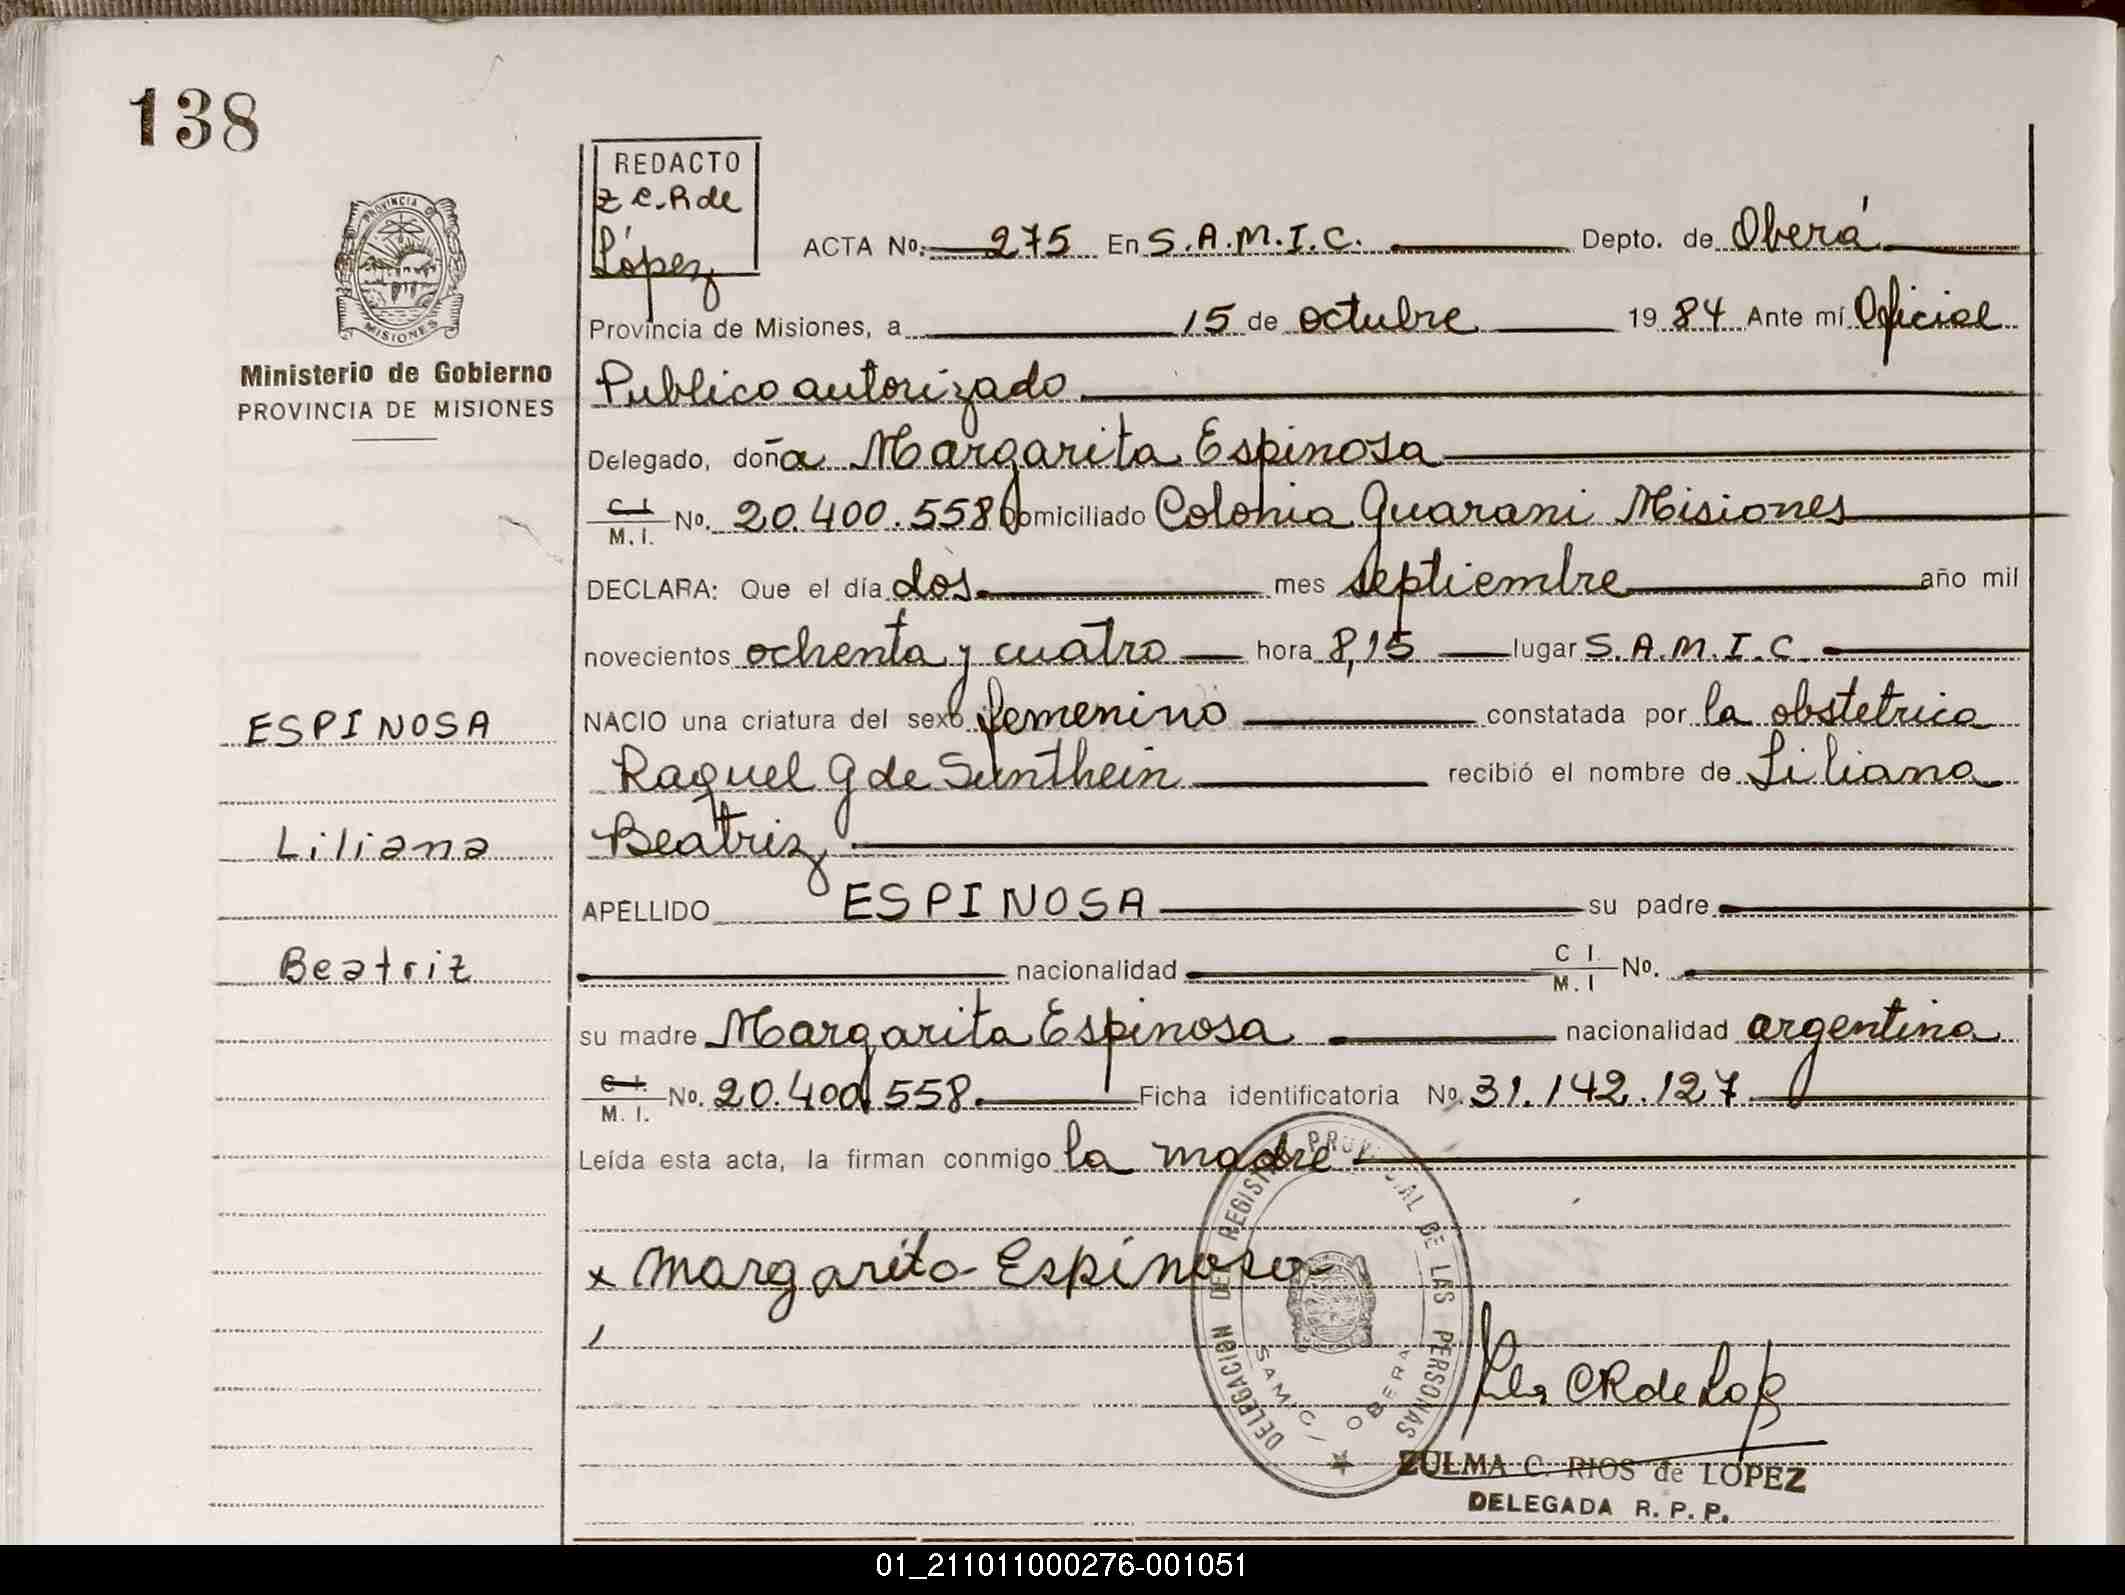 138
REDACTO
Z C. R de
López
PROVINCIA D
MISIONES
Ministerio de Gobierno
PROVINCIA DE MISIONES
ACTA No. 275 En S.A.M.I.C. Depto. de Oberá
Provincia de Misiones, a 15 de octubre 1984 Ante mí Oficial
Publico autorizado
Delegado, doña Margarita Espinosa
C I.
M. I. No. 20.400.558 Domiciliado Colonia Guarani Misiones
DECLARA: Que el día dos mes septiembre año mil
novecientos ochenta y cuatro hora 8,15 lugar S.A.M.I.C.
ESPINOSA
NACIO una criatura del sexo femenino constatada por la obstetrica
Raquel G de Sunthein recibió el nombre de Liliana
Liliana
Beatriz
APELLIDO ESPINOSA su padre
Beatriz
nacionalidad C I. M. I No.
su madre Margarita Espinosa nacionalidad argentina
C I.
M. I. No. 20.400.558. Ficha identificatoria No. 31.142.127
Leída esta acta, la firman conmigo la madre
x Margarita Espinosa
DELEGACION DEL REGISTRO PROVINCIAL DE LAS PERSONAS
SAMIC / OBERA
ZULMA C. RIOS de LOPEZ
DELEGADA R. P. P.
01_211011000276-001051